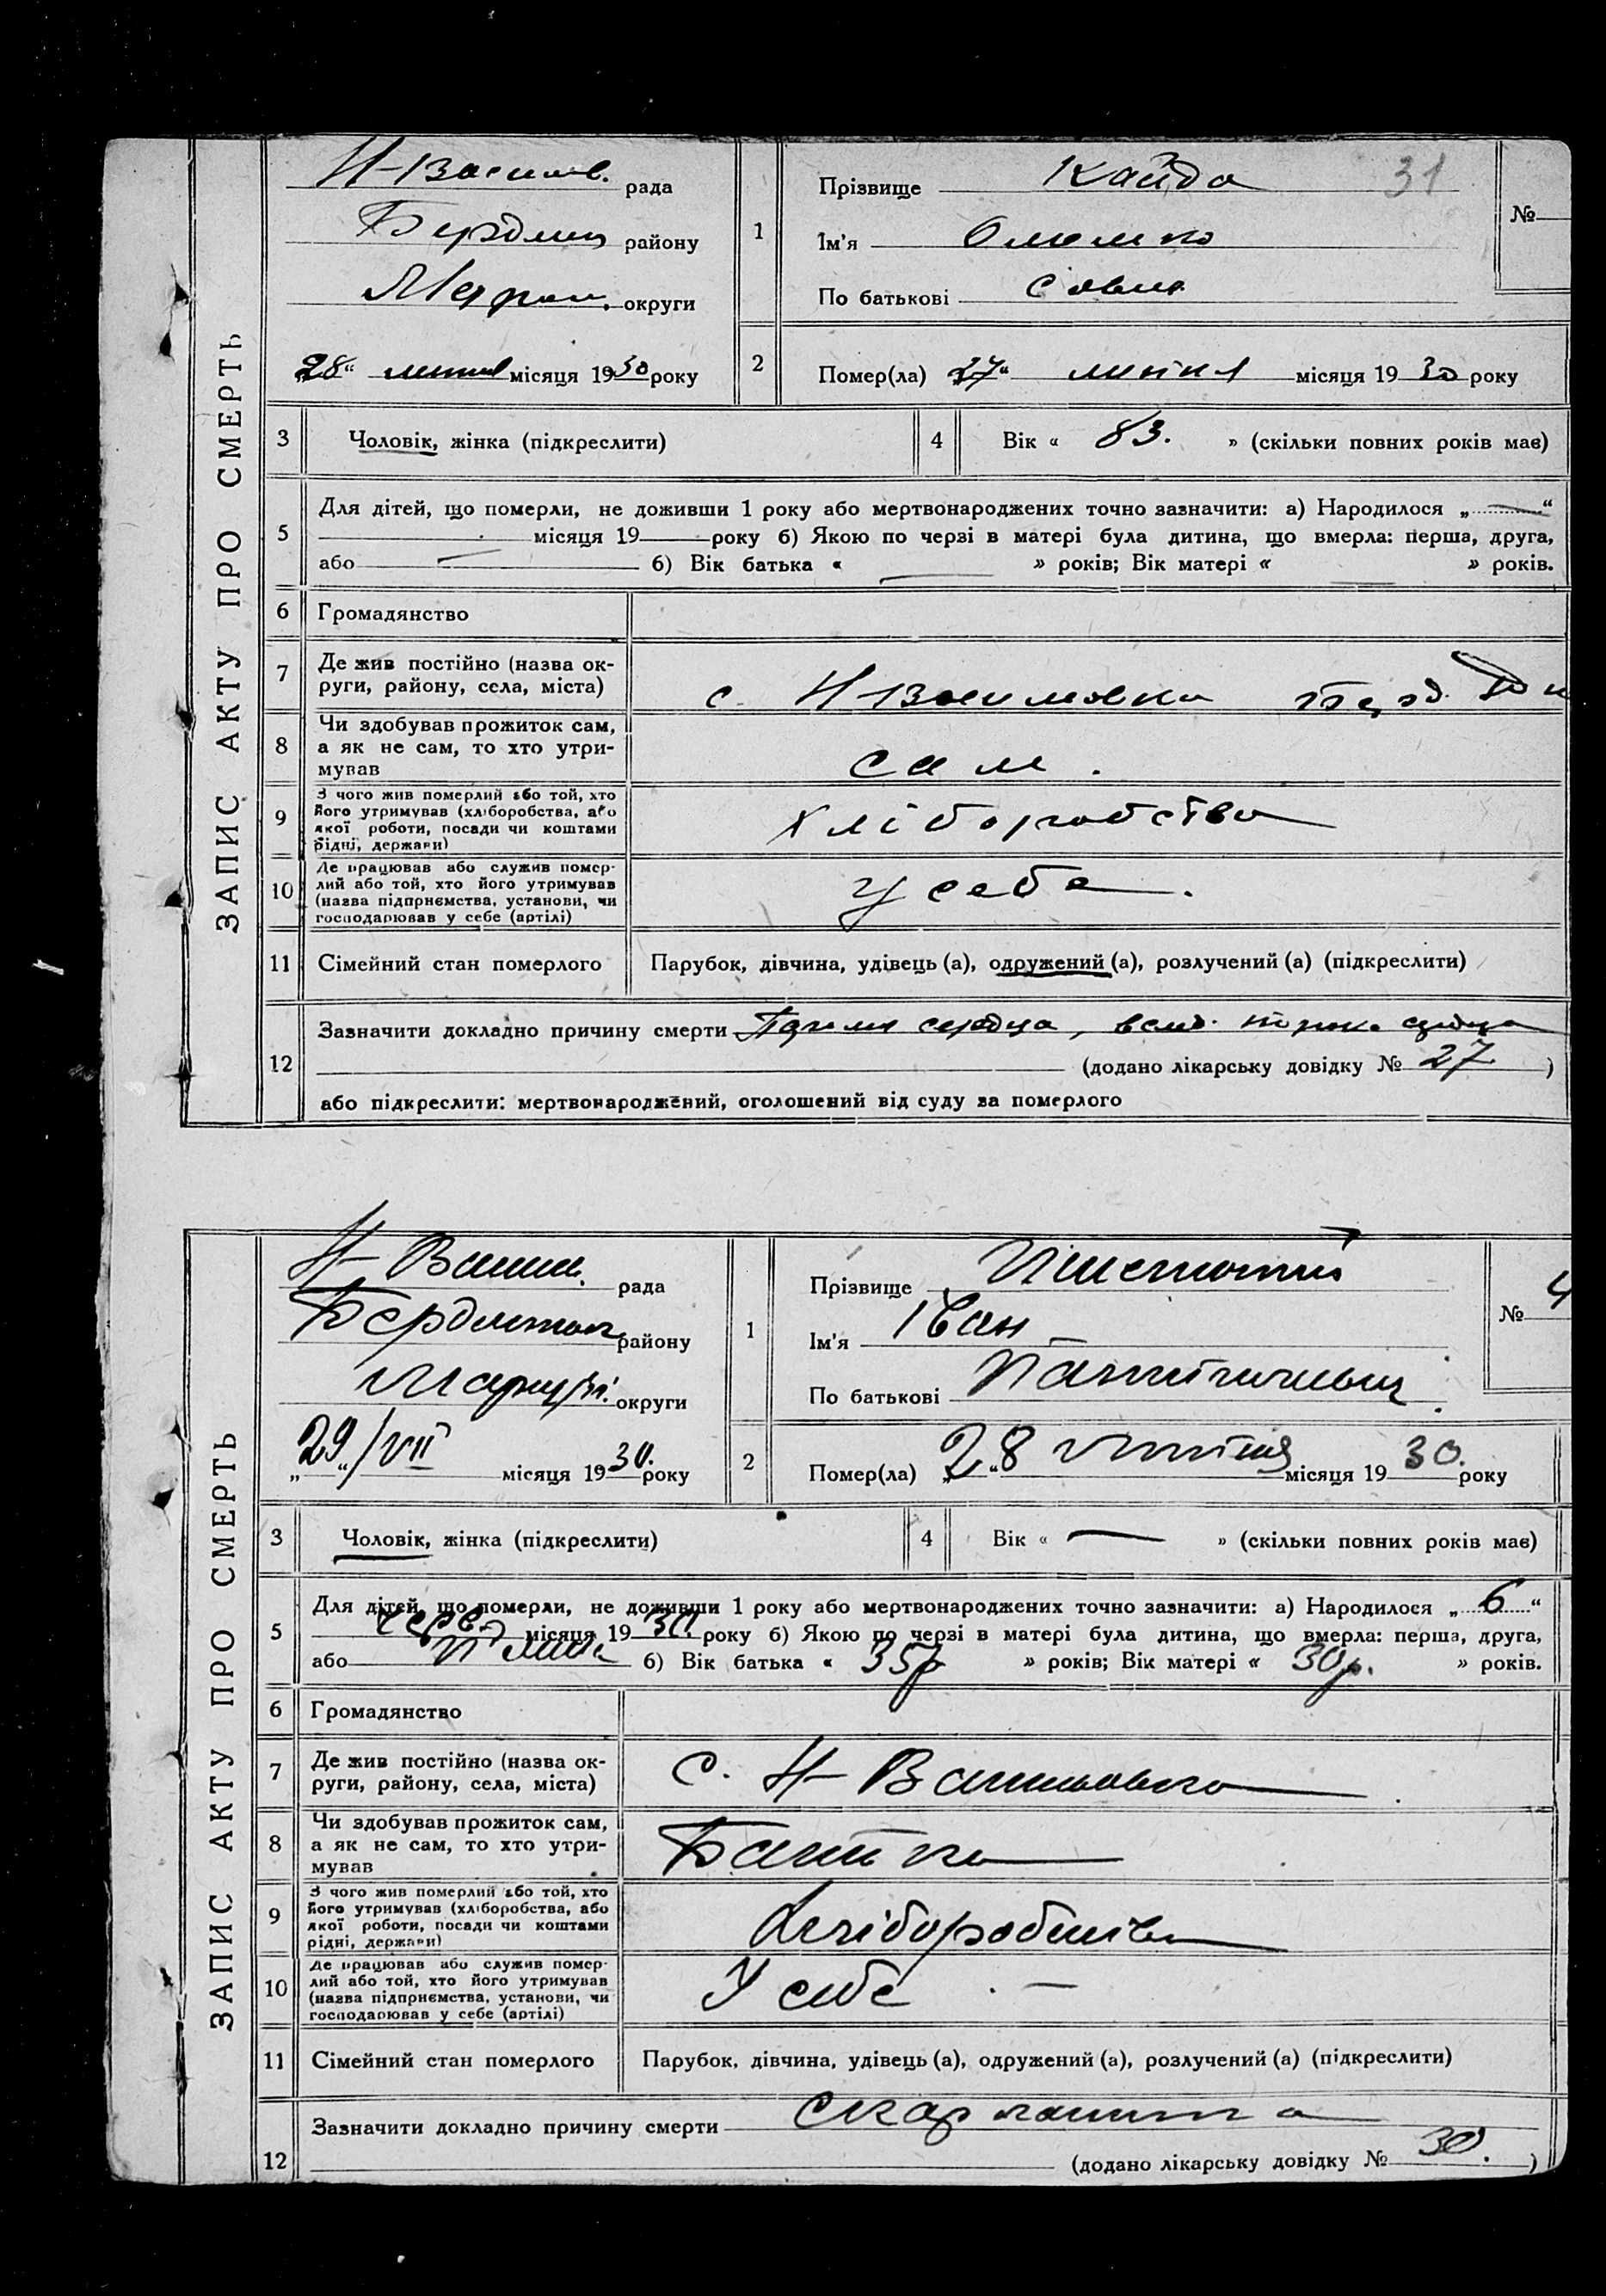 ЗАПИС АКТУ ПРО СМЕРТЬ
Н-Василів. рада
району
округи
28 липня місяця 1930 року
1
Прізвище Кайда
31
Ім'я
По батькові Савич
№
2
Помер(ла) 27 липня місяця 1930 року
3 Чоловік, жінка (підкреслити)
4 Вік « 83. » (скільки повних років має)
5 Для дітей, що померли, не доживши 1 року або мертвонароджених точно зазначити: а) Народилося „ — “
місяця 19 року б) Якою по черзі в матері була дитина, що вмерла: перша, друга,
або — 6) Вік батька « — » років; Вік матері « — » років.
6 Громадянство
7 Де жив постійно (назва ок-
руги, району, села, міста)
с. Н-Василовка
8 Чи здобував прожиток сам,
а як не сам, то хто утри-
мував
сам.
9 З чого жив померлий або той, хто
його утримував (хліборобства, або
якої роботи, посади чи коштами
рідні, держави)
хліборобство
10 Де працював або служив помер-
лий або той, хто його утримував
(назва підприємства, установи, чи
господарював у себе (артілі)
у себе.
11 Сімейний стан померлого
Парубок, дівчина, удівець (а), одружений (а), розлучений (а) (підкреслити)
12 Зазначити докладно причину смерти сердца, порока сердца
(додано лікарську довідку № 27 )
або підкреслити: мертвонароджений, оголошений від суду за померлого
ЗАПИС АКТУ ПРО СМЕРТЬ
Н-Васил. рада
Бердянськ. району
Маріуп. округи
„29“/VII місяця 1930. року
1
Прізвище
Ім'я Іван
По батькові
№ 4
2
Помер(ла) „28“ липня місяця 1930. року
3 Чоловік, жінка (підкреслити)
4 Вік « — » (скільки повних років має)
5 Для дітей, що померли, не доживши 1 року або мертвонароджених точно зазначити: а) Народилося „ 6 “
черв. місяця 1930 року б) Якою по черзі в матері була дитина, що вмерла: перша, друга,
або 6) Вік батька « 35р » років; Вік матері « 30р. » років.
6 Громадянство
7 Де жив постійно (назва ок-
руги, району, села, міста)
с. Н-Васильовка
8 Чи здобував прожиток сам,
а як не сам, то хто утри-
мував
Батько
9 З чого жив померлий або той, хто
його утримував (хліборобства, або
якої роботи, посади чи коштами
рідні, держави)
Хліборобства
10 Де працював або служив помер-
лий або той, хто його утримував
(назва підприємства, установи, чи
господарював у себе (артілі)
У себе —
11 Сімейний стан померлого
Парубок, дівчина, удівець (а), одружений (а), розлучений (а) (підкреслити)
12 Зазначити докладно причину смерти скарлатина
(додано лікарську довідку № 30. )